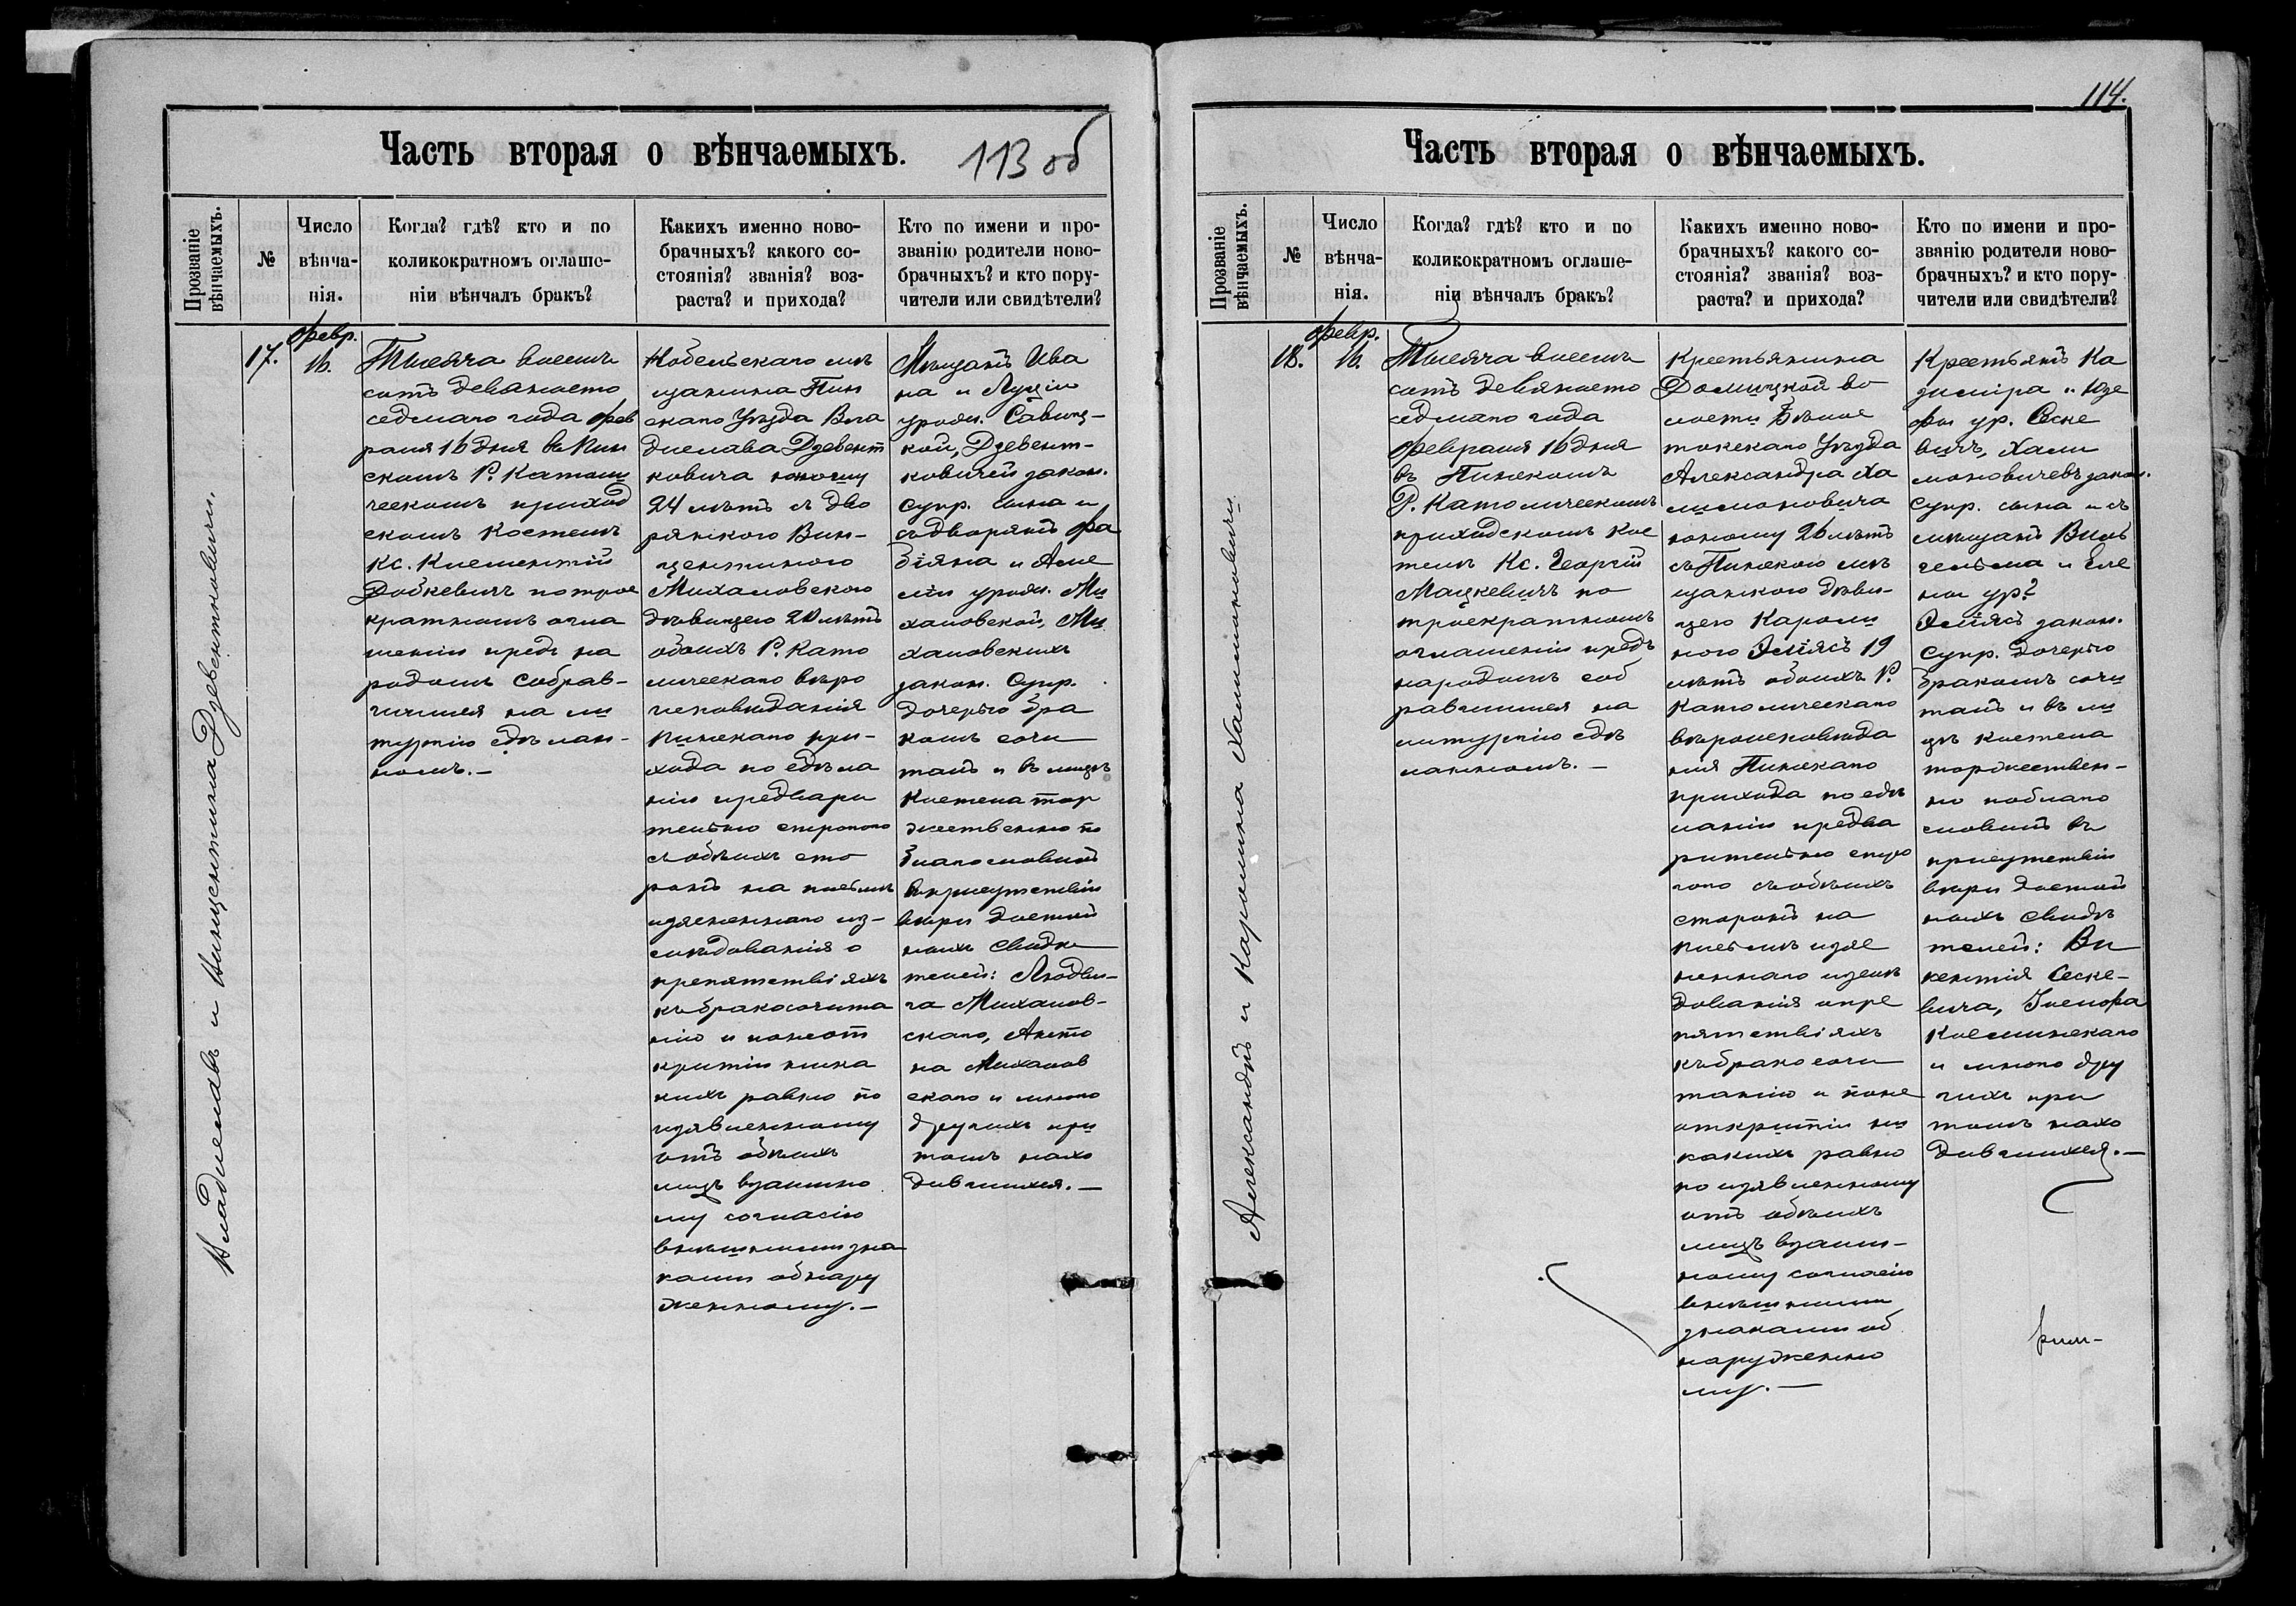 113 об
Часть вторая о вѣнчаемыхъ.
Прозваніе
вѣнчаемыхъ.
№
Число
вѣнча-
нія.
Когда? гдѣ? кто и по
коликократномъ оглаше-
ніи вѣнчалъ бракъ?
Какихъ именно ново-
брачныхъ? какого со-
стоянія? званія? воз-
раста? и прихода?
Кто по имени и про-
званію родители ново-
брачныхъ? и кто пору-
чители или свидѣтели?
Владиславъ и Винцентина Дзевентковичи.
17.
Февр.
16.
Тысяча восемь
сотъ девяносто
седмаго года Фев
раля 16 дня въ Пин
скомъ Р. Католи
ческомъ приход
скомъ Костелѣ
Кс. Климентій
Добкевичъ по трое
кратномъ огла
шеніи предъ на
родомъ собрав-
шимся на ли
тургію сдѣлан-
номъ.—
Кобельскаго мѣ
щанина Пин
скаго Уѣзда Вла
дислава Дзевент
ковича юношу
24 лѣтъ съ Дво
рянкою Вин-
центиною
Михаловскою
дѣвицею 20 лѣтъ
обоихъ Р. Като
лическаго вѣро
исповѣданія
Пинскаго при-
хода по сдѣла
ніи предвари
тельно строгого
съ обѣихъ сто
ронъ на письмѣ
изясненнаго из-
слѣдованія о
препятствіяхъ
къ бракосочета
нію и понеот
крытіи ника
кихъ равно по
изявленному
отъ обѣихъ
лицъ взаимно
му согласію
внѣшними зна
ками обнару
женному.—
Мѣщанъ Ива
на и Луціи
урожд. Савиц-
кой, Дзевент-
ковичей закон.
Супр. сына и
съ дворянъ Фа
біяна и Аме
ліи урожд. Ми
халовской, Ми
халовскихъ
закон. Супр.
дочерью бра
комъ сочи
талъ и въ лицѣ
Костела тор
жественно по
благословилъ
въ присутствіи
вѣры достой
ныхъ свидѣ
телей: Людви-
га Михалов-
скаго, Анто
на Михалов
скаго и много
другихъ при
томъ нахо
дившихся.—
114.
Часть вторая о вѣнчаемыхъ.
Прозваніе
вѣнчаемыхъ.
№
Число
вѣнча-
нія.
Когда? гдѣ? кто и по
коликократномъ оглаше-
ніи вѣнчалъ бракъ?
Какихъ именно ново-
брачныхъ? какого со-
стоянія? званія? воз-
раста? и прихода?
Кто по имени и про-
званію родители ново-
брачныхъ? и кто пору-
чители или свидѣтели?
Александръ и Каролина Халимоновичи
18.
Февр.
16.
Тысяча восемь
сотъ девяносто
седмаго года
Февраля 16 дня
въ Пинскомъ
Р. Католическомъ
приходскомъ Кос
телѣ Кс. Георгій
Мацкевичъ по
троекратномъ
оглашеніи предъ
народомъ соб
равшимся на
литургію сдѣ
ланномъ.—
Крестьянина
во
лости Бѣлос
токскаго Уѣзда
Александра Ха
лимоновича
юношу 26 лѣтъ
съ Пинскою мѣ
щанкою дѣви-
цею Кароли
ною 19
лѣтъ обоихъ Р.
Католическаго
вѣроисповѣда
нія Пинскаго
прихода по сдѣ
ланіи предва
рительно стро
гого съ обѣихъ
сторонъ на
письмѣ изяс
неннаго изслѣ
дованія о пре
пятствіяхъ
къ бракосоче
танію и поне
открытіи ни
какихъ равно
по изявленному
отъ обѣихъ
лицъ взаим-
ному согласію
внѣшними
знаками об
наруженно
му.—
Крестьянъ Ка
зиміра и Юзе
фы ур. Сеске
вичъ, Хали
моновичевъ закон.
Супр. сына и съ
мѣщанъ Виль
гельма и Еле
ны ур?
закон.
Супр. дочерью
бракомъ сочи
талъ и въ ли
цѣ Костела
торжествен-
но поблаго
словилъ въ
присутствіи
вѣры достой
ныхъ свидѣ
телей: Ви
кентія Сеске-
вича, Іосифа
Косминскаго
и много дру
гихъ при
томъ нахо
дившихся.—